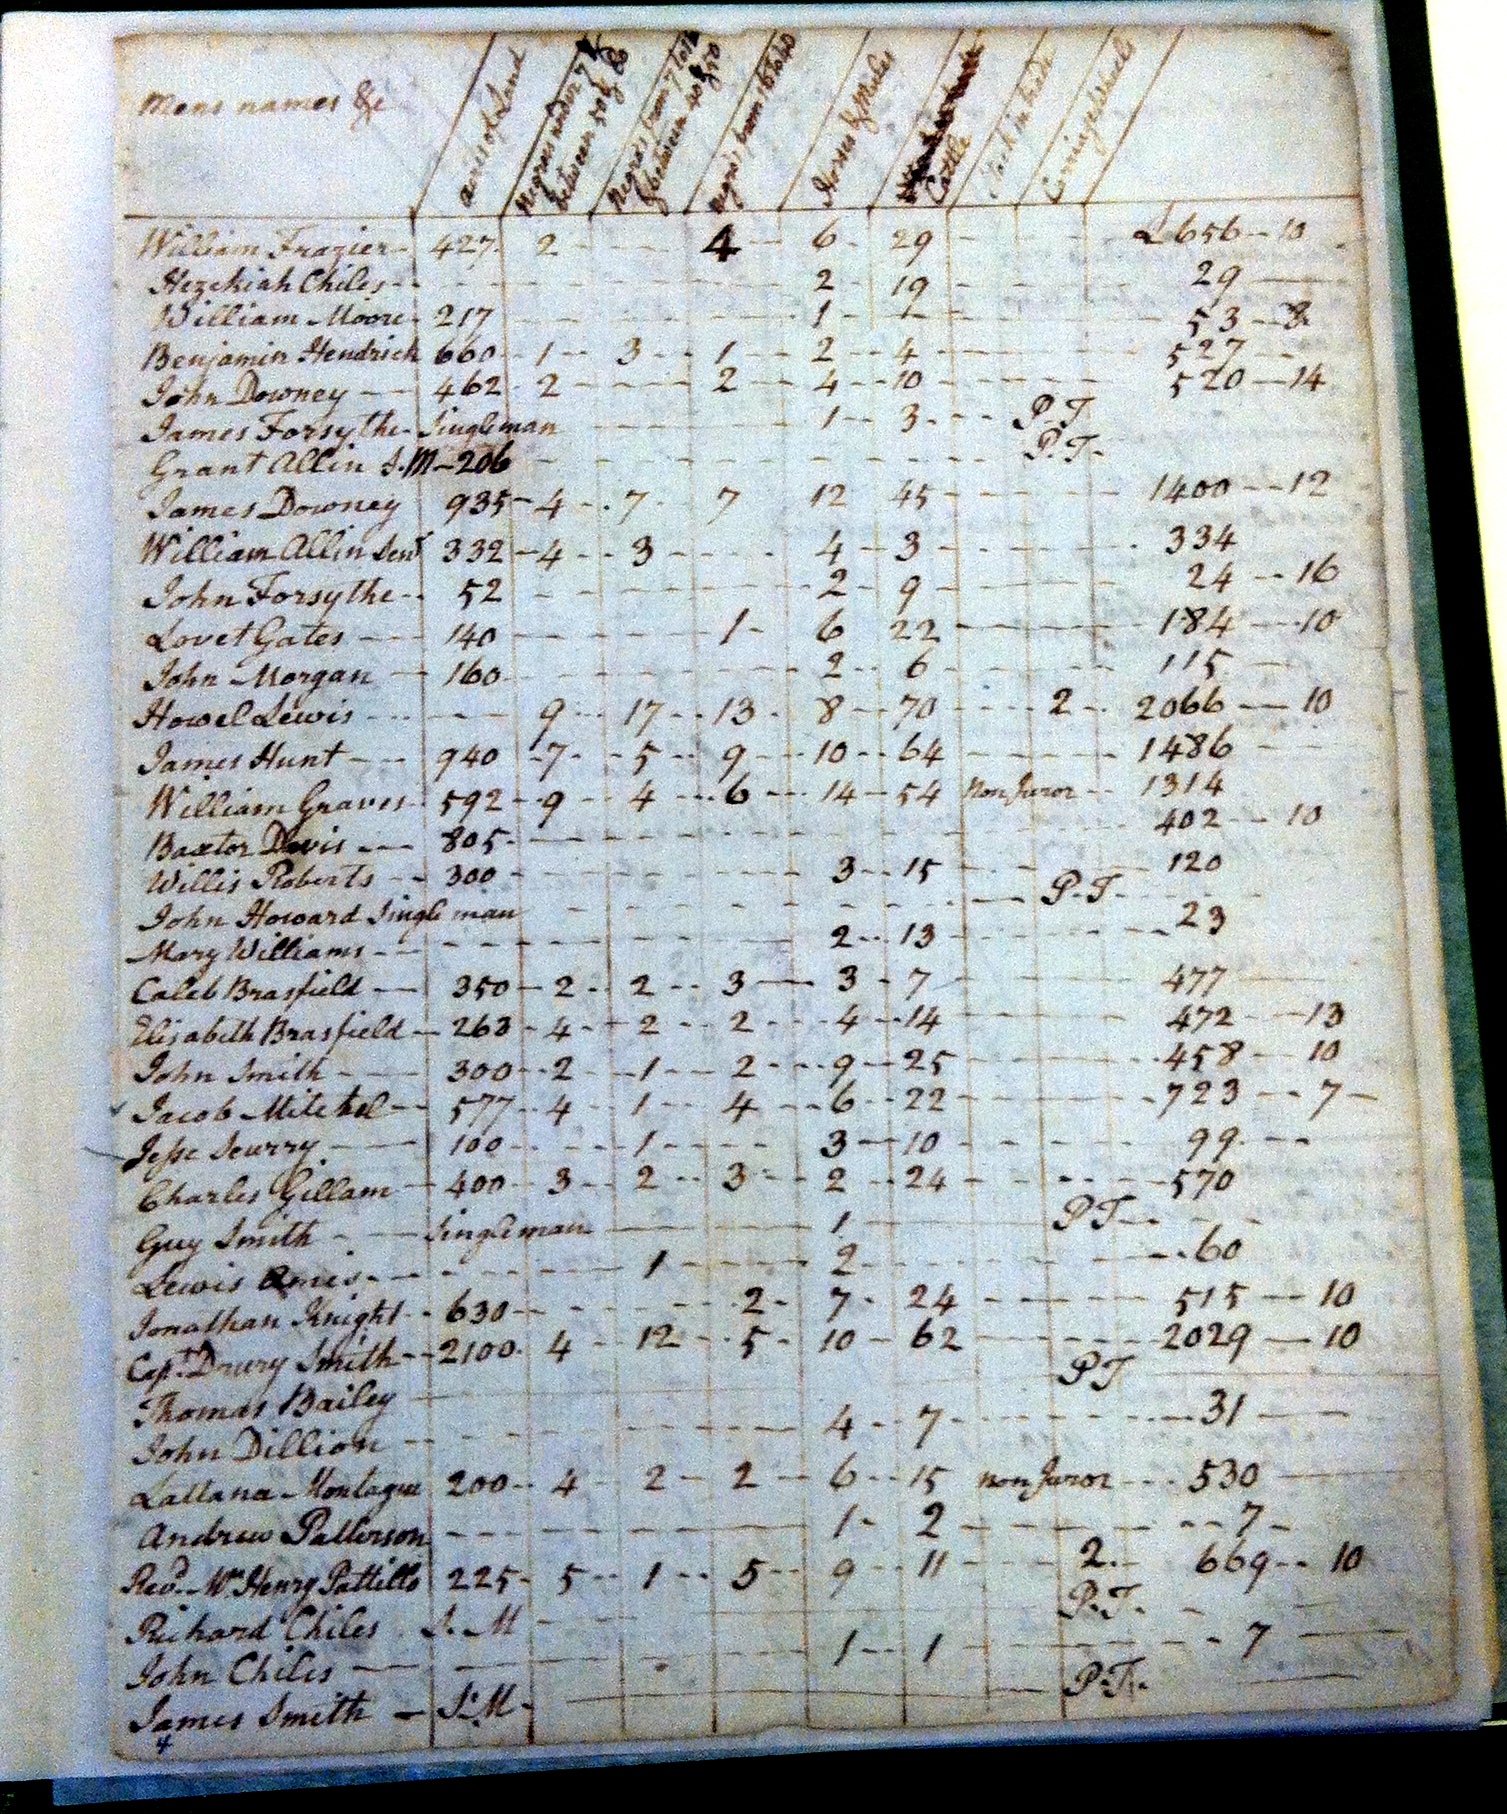 Mens names &c
acres of Land
Negroes under 7 & between 50 & 60
Negro's from 7 to 16 & between 40 & 50
Negro's from 16 to 40
Horses & Mules
Cattle
Stock in trade
Carriage wheels
William Frazier - 427 - 2 - - - 4 - 6 - 29 - - - £656 - 10
Hezekiah Chiles - - - - 2 - 19 - - - 29
William Moore - 217 - - - 1 - - - 53 - 8
Benjamin Hendrick 660 - 1 - 3 - 1 - 2 - 4 - - - 527
John Downey - 462 - 2 - - - 2 - 4 - 10 - - - 520 - 14
James Forsythe - Singleman - - - 1 - 3 - - - P.T.
Grant Allin S.M - 206 - - - P.T.
James Downey 935 - 4 - 7 - 7 12 45 - - - 1400 - 12
William Allin Senr 332 - 4 - 3 - - - 4 - 3 - - - 334
John Forsythe - 52 - - - 2 - 9 - - - 24 - 16
Lovet Gates - 140 - - - 1 - 6 22 - - - 184 - 10
John Morgan - 160 - - - 2 - 6 - - - 115
Howel Lewis - - - 9 - 17 - 13 - 8 - 70 - - - 2 - 2066 - 10
James Hunt - 940 - 7 - 5 - 9 - 10 - 64 - - - 1486
William Graves - 592 - 9 - 4 - 6 - 14 - 54 Non Juror - 1314
Baxtor Davis - 805 - - - 402 - 10
Willis Roberts - 300 - - - 3 - 15 - - - 120
John Howard Single man - - - P.T.
Mary Williams - - - 2 - 13 - - - 23
Caleb Brasfield - 350 - 2 - 2 - 3 - 3 - 7 - - - 477
Elisabeth Brasfield - 263 - 4 - 2 - 2 - 4 - 14 - - - 472 - 13
John Smith - 300 - 2 - 1 - 2 - 9 - 25 - - - 458 - 10
Jacob Mitchel - 577 - 4 - 1 - 4 - 6 - 22 - - - 723 - 7
Jesse Scurry - 100 - - - 1 - - - 3 - 10 - - - 99
Charles Gillam - 400 - 3 - 2 - 3 - 2 - 24 - - - 570
Guy Smith - Singleman - - - 1 - - - P.T.
Lewis Amis - - - 1 - - - 2 - - - 60
Jonathan Knight - 630 - - - 2 - 7 - 24 - - - 515 - 10
Capt. Drury Smith - 2100 - 4 - 12 - 5 - 10 - 62 - - - 2029 - 10
Thomas Bailey - - - P.T
John Dillion - - - 4 - 7 - - - 31
Lattana Montague 200 - 4 - 2 - 2 - 6 - 15 non Juror - - - 530
Andrew Patterson - - - 1 - 2 - - - 7
Revd. Mr. Henry Pattillo 225 - 5 - 1 - 5 - 9 - 11 - - - 2 - 669 - 10
Richard Chiles S. M - - - P.T.
John Chiles - - - 1 - 1 - - - 7
James Smith - S.M - - - P.T.
4